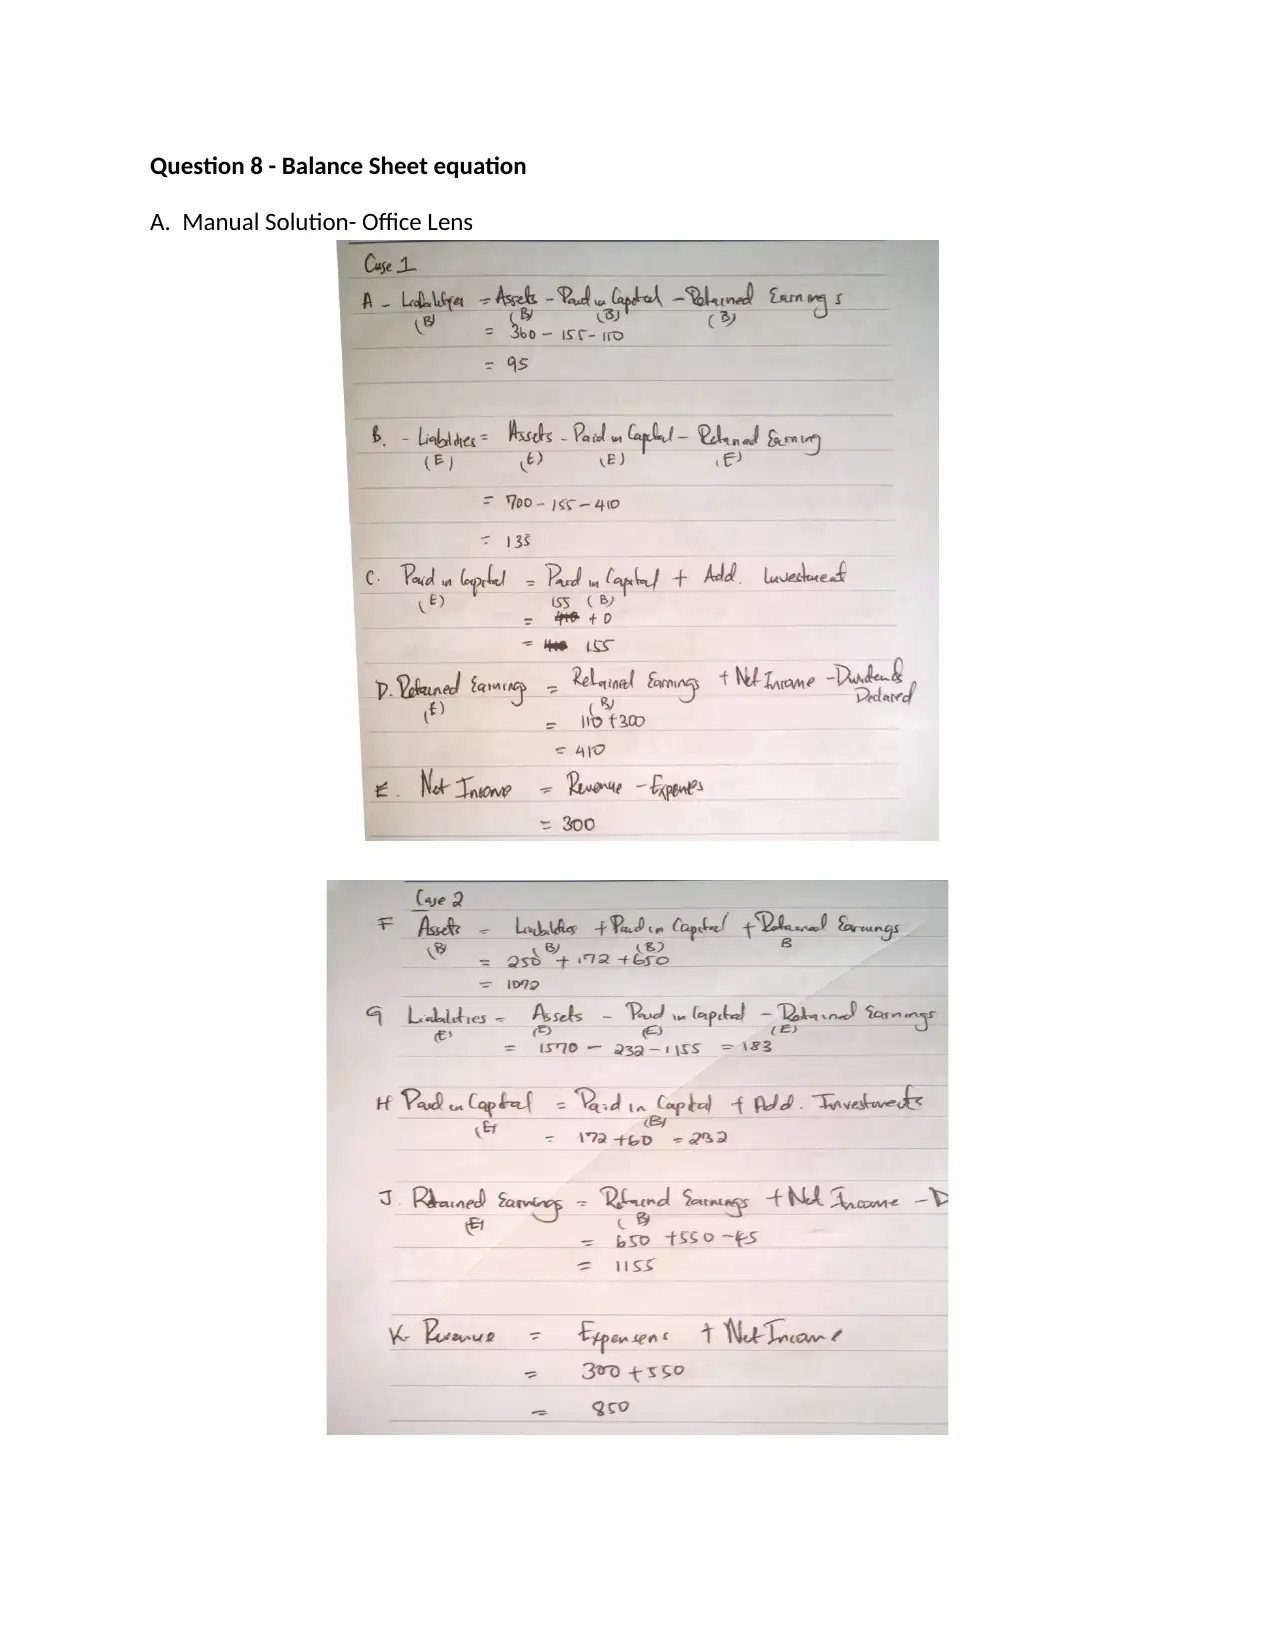 Question 8 - Balance Sheet equation
A. Manual Solution- Office Lens
Case 1
A - Liabilities = Assets - Paid in Capital - Retained Earnings
(B) (B) (B) (B)
= 360 - 155 - 110
= 95
B. - Liabilities = Assets - Paid in Capital - Retained Earning
(E) (E) (E) (E)
= 700 - 155 - 410
= 135
C. Paid in Capital = Paid in Capital + Add. Investment
(E) 155 (B)
= 410 + 0
= 410 155
D. Retained Earning = Retained Earnings + Net Income - Dividends
Declared
(E) (B)
= 110 + 300
= 410
E. Net Income = Revenue - Expenses
= 300
Case 2
F Assets = Liabilities + Paid in Capital + Retained Earnings
(B) (B) (B) B
= 250 + 172 + 650
= 1072
G Liabilities = Assets - Paid in Capital - Retained Earnings
(E) (E) (E) (E)
= 1570 - 232 - 1155 = 183
H Paid in Capital = Paid in Capital + Add. Investments
(E) (B)
= 172 + 60 = 232
J. Retained Earnings = Retained Earnings + Net Income - D
(E) (B)
= 650 + 550 - 45
= 1155
K Revenue = Expenses + Net Income
= 300 + 550
= 850